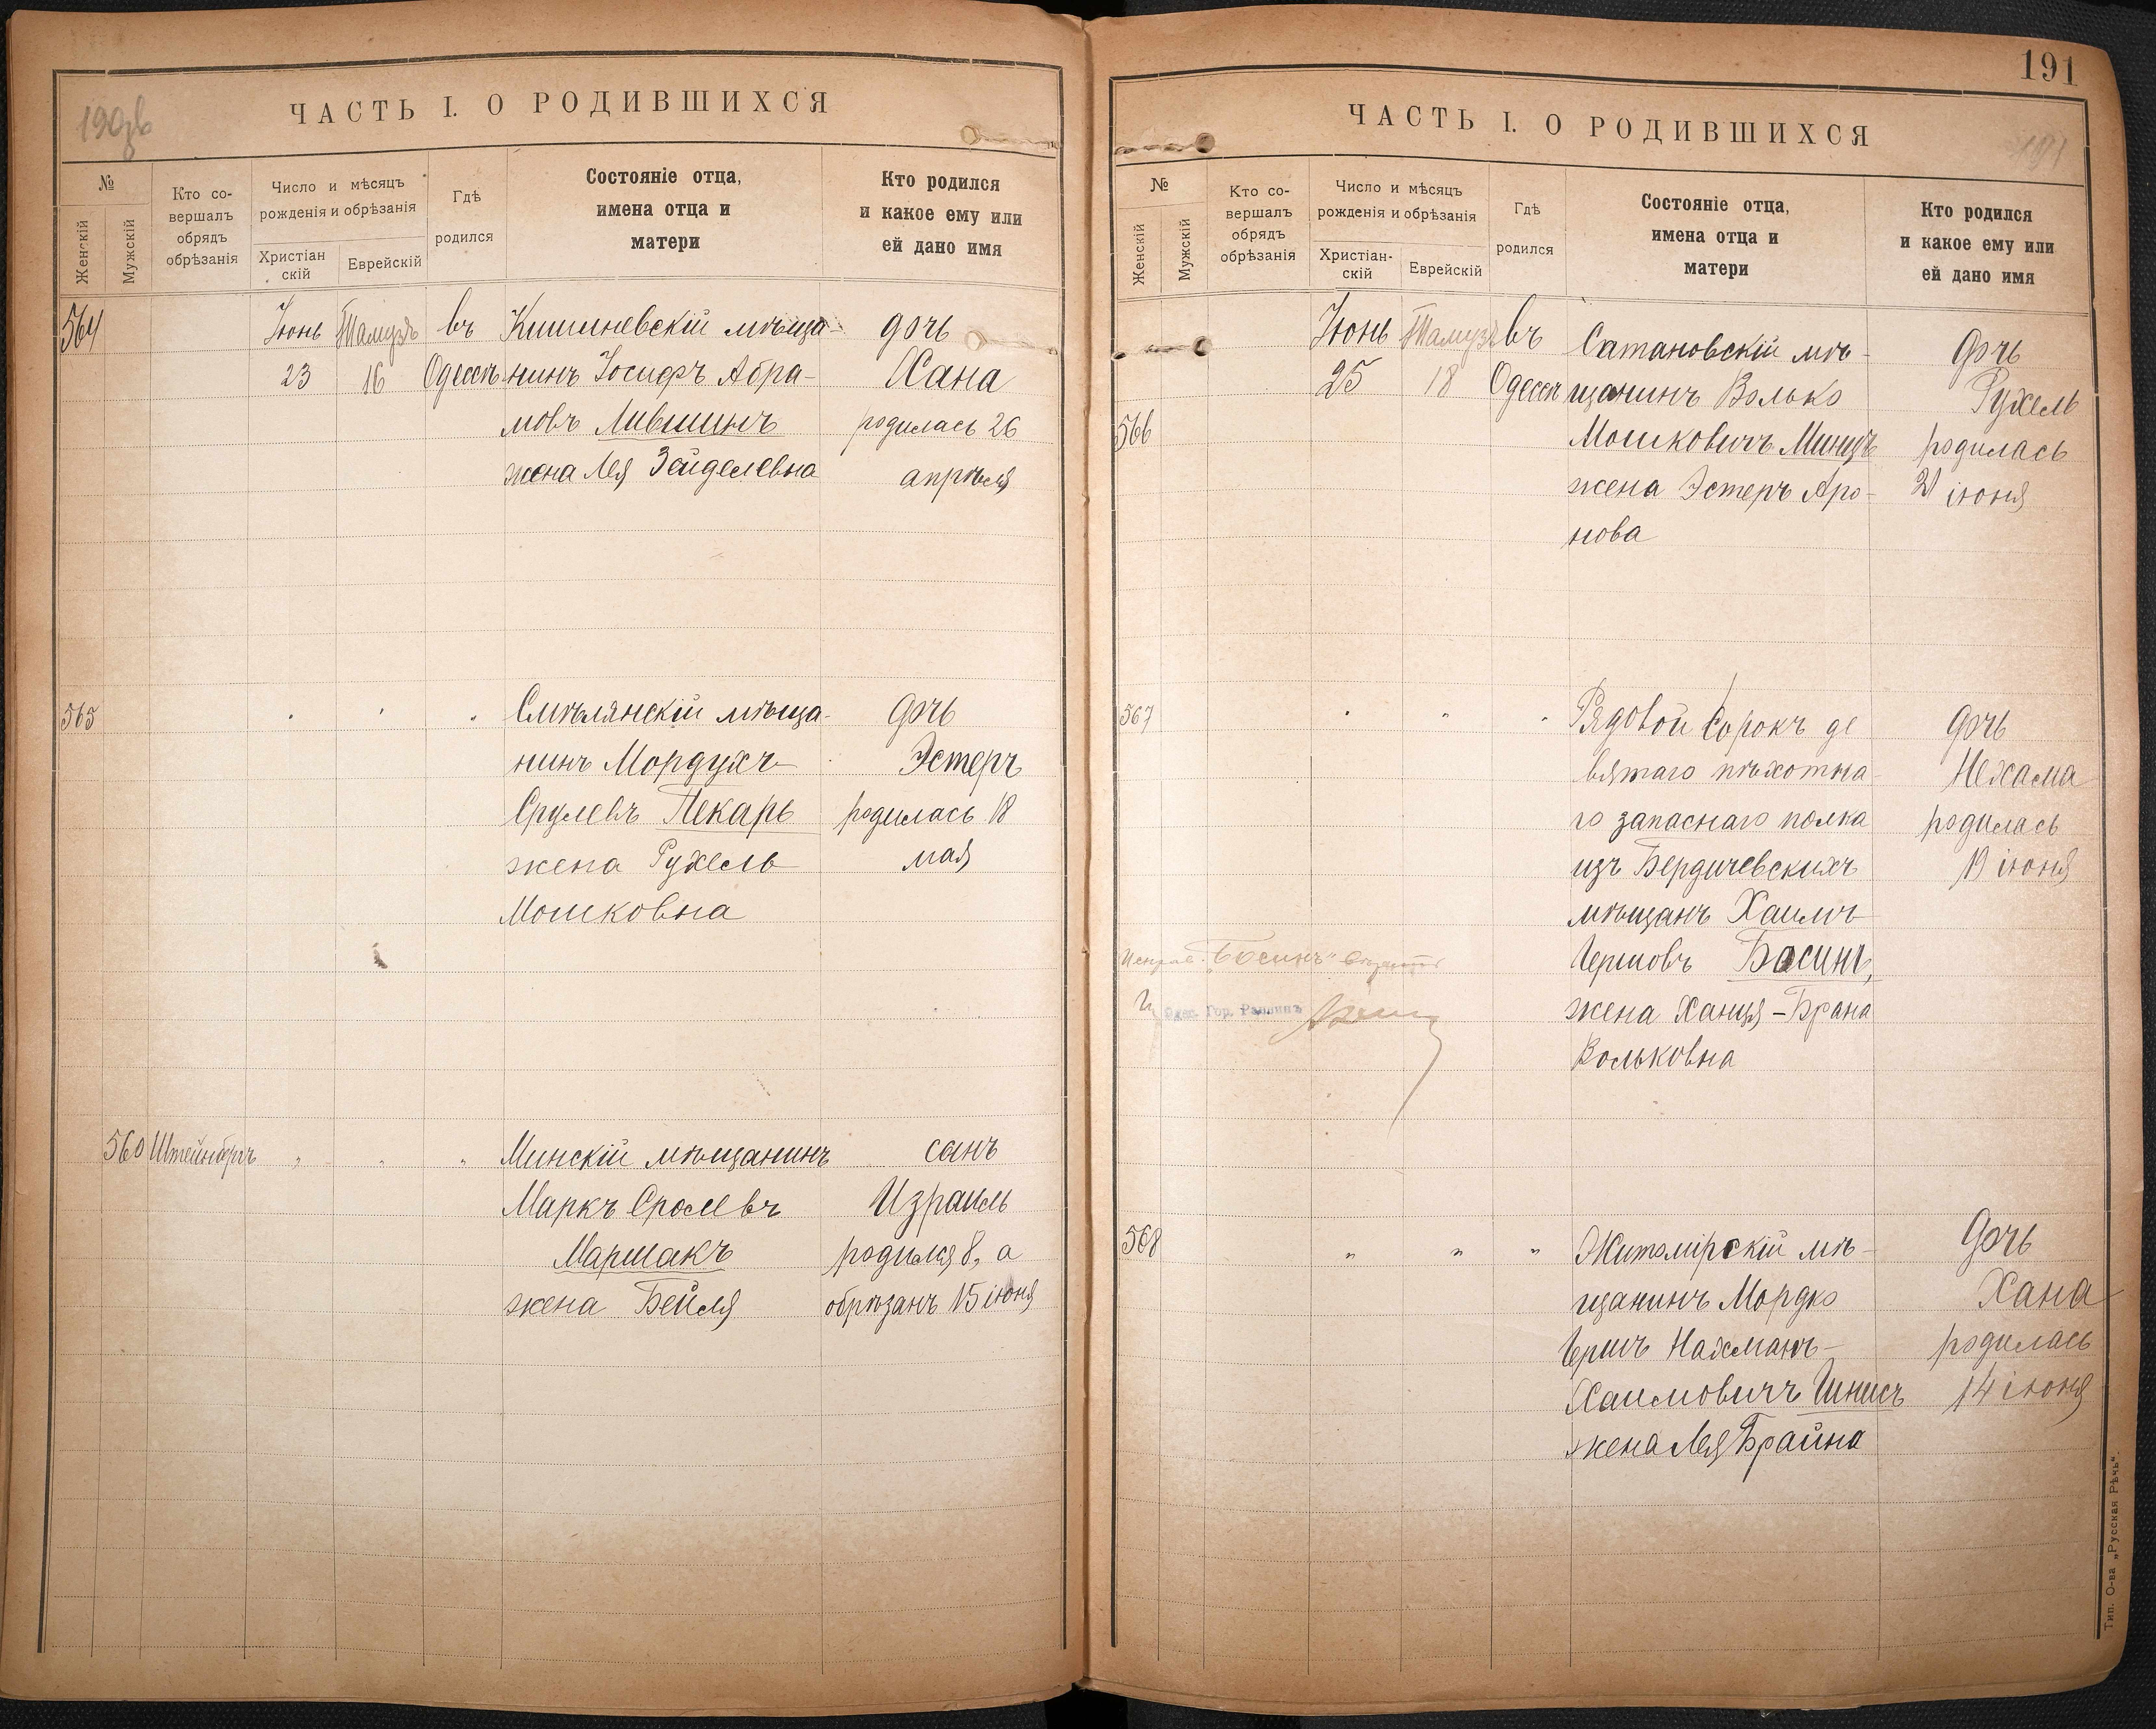 190об
ЧАСТЬ I. О РОДИВШИХСЯ
№
Женскій
Мужскій
Кто со-
вершалъ
обрядъ
обрѣзанія
Число и мѣсяцъ
рожденія и обрѣзанія
Христіан
скій
Еврейскій
Гдѣ
родился
Состояніе отца,
имена отца и
матери
Кто родился
и какое ему или
ей дано имя
564 Іюнь Тамузъ въ Кишиневскій мѣща- дочь
23 16 Одессѣ нинъ Іосифъ Абра- Хана
мовъ Лившинъ родилась 26
жена Лея Зейделевна апрѣля
565 " " " Смѣлянскій мѣща- дочь
нинъ Мордухъ Эстеръ
Срулевъ Пекарь родилась 18
жена Рухель мая
Мошковна
560 Штейнбергъ " " " Минскій мѣщанинъ сынъ
Маркъ Сролевъ Израиль
Маршакъ родился 8, а
жена Бейля обрѣзанъ 15 іюня
191
ЧАСТЬ I. О РОДИВШИХСЯ
191
№
Женскій
Мужскій
Кто со-
вершалъ
обрядъ
обрѣзанія
Число и мѣсяцъ
рожденія и обрѣзанія
Христіан-
скій
Еврейскій
Гдѣ
родился
Состояніе отца,
имена отца и
матери
Кто родился
и какое ему или
ей дано имя
Іюнь Тамузъ въ Сатановскій мѣ- дочь
25 18 Одессѣ щанинъ Волько Рухель
566 Мошковичъ Минцъ родилась
жена Эстеръ Аро- 21 іюня
нова
567 " " " Рядовой Сорокъ де дочь
вятаго пѣхотна- Нехама
го запаснаго полка родилась
изъ Бердичевскихъ 19 іюня
мѣщанъ Хаимъ
Исправ. "Босинъ" Гершовъ Босинъ,
Одес. Гор. Раввинъ жена Ханця-Брана
Вольковна
568 " " " Житомірскій мѣ- дочь
щанинъ Мордко Хана
Гершъ Нахманъ- родилась
Хаимовичъ Шнисъ 14 іюня
жена Лея Брайна
Тип. О-ва „Русская Рѣчь“.